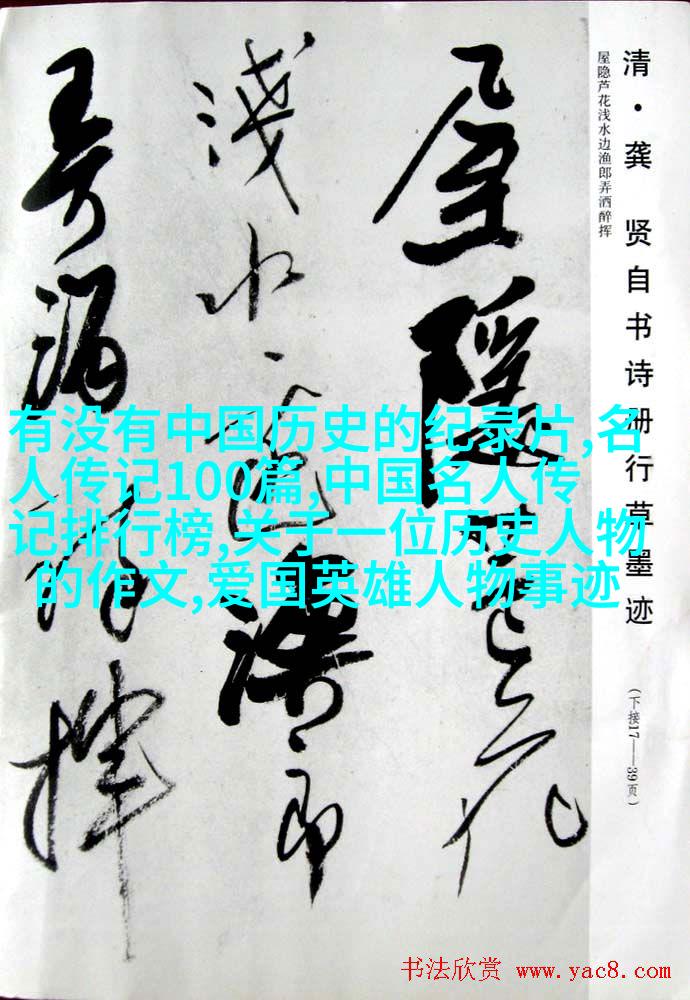 清·龚 贤自书诗册行草墨迹
(下接17——39页)
屋隐芦花浅水边渔郎弄洒醉挥
屋隱蘆花
淺水邊漁郎
弄酒醉揮
有没有中国历史的纪录片,名
人传记100篇,中国名人传
记排行榜,关于一位历史人物
的作文,爱国英雄人物事迹
书法欣赏 www.yac8.com